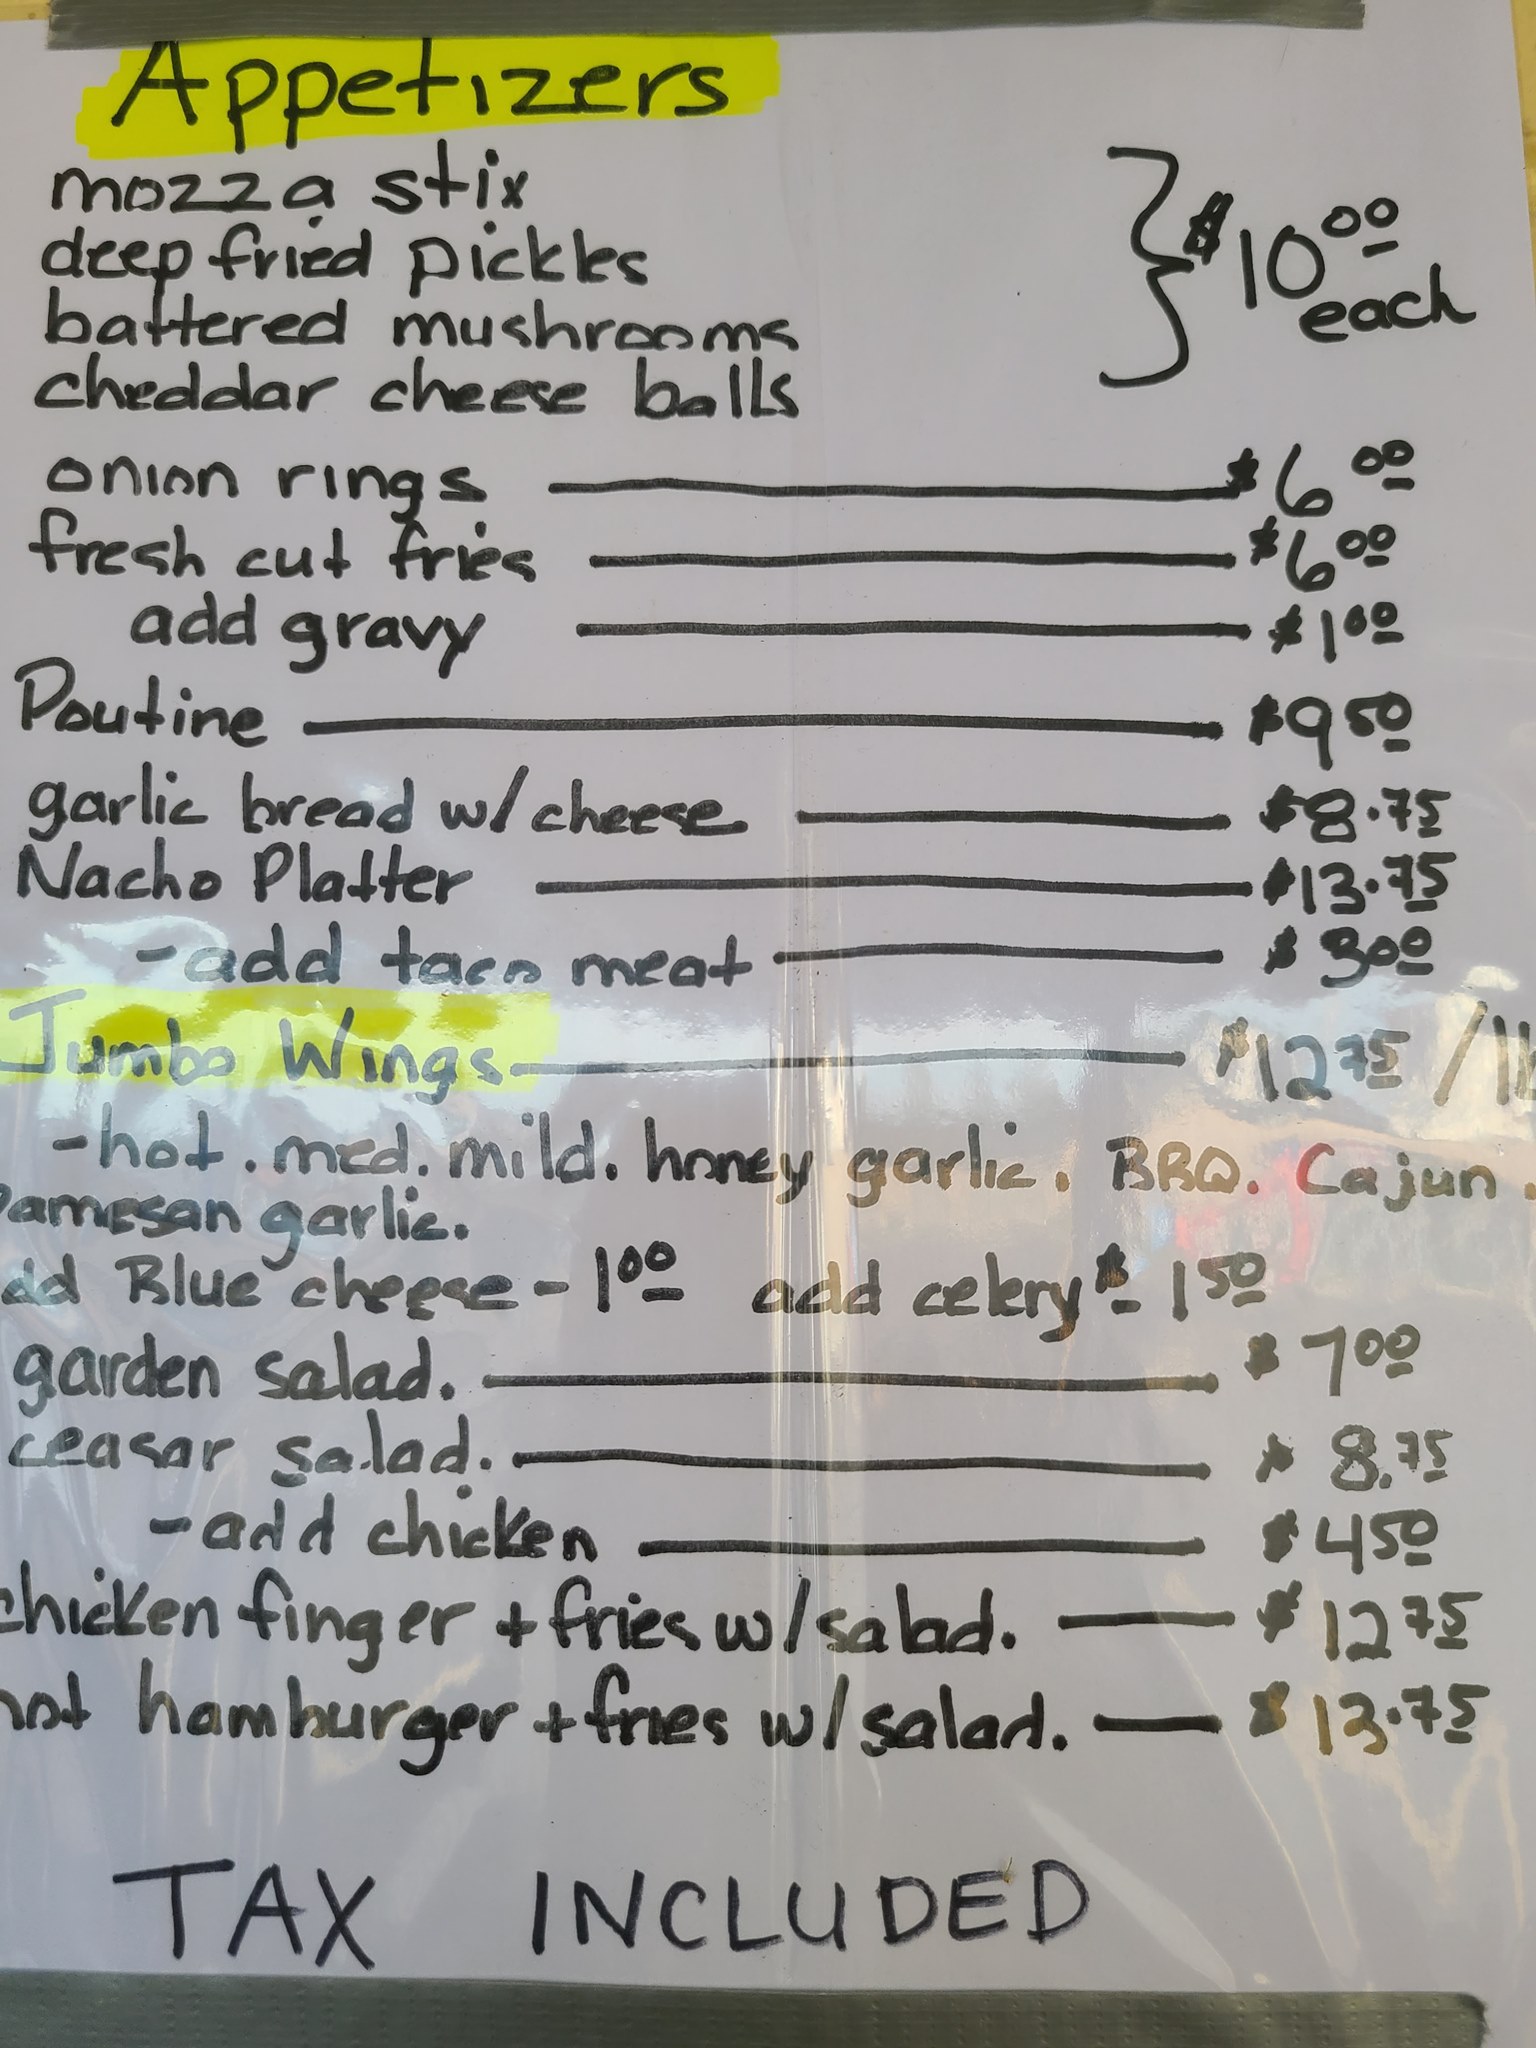 Appetizers
mozza stix
deep fried pickles
battered mushrooms
cheddar cheese balls
} $10.00 each
onion rings — $6.00
fresh cut fries — $6.00
add gravy — $1.00
Poutine — $9.50
garlic bread w/cheese — $8.75
Nacho Platter — $13.75
-add taco meat — $3.00
Jumbo Wings — $12.75 /1
-hot. med. mild. honey garlic. BBQ. Cajun.
Pamesan garlic.
dd Blue cheese - 1.00 add celery $- 1.50
garden salad. — $7.00
ceasar salad. — $8.75
-add chicken — $4.50
chicken finger + fries w/salad. — $12.75
hot hamburger + fries w/salad. — $13.75
TAX INCLUDED